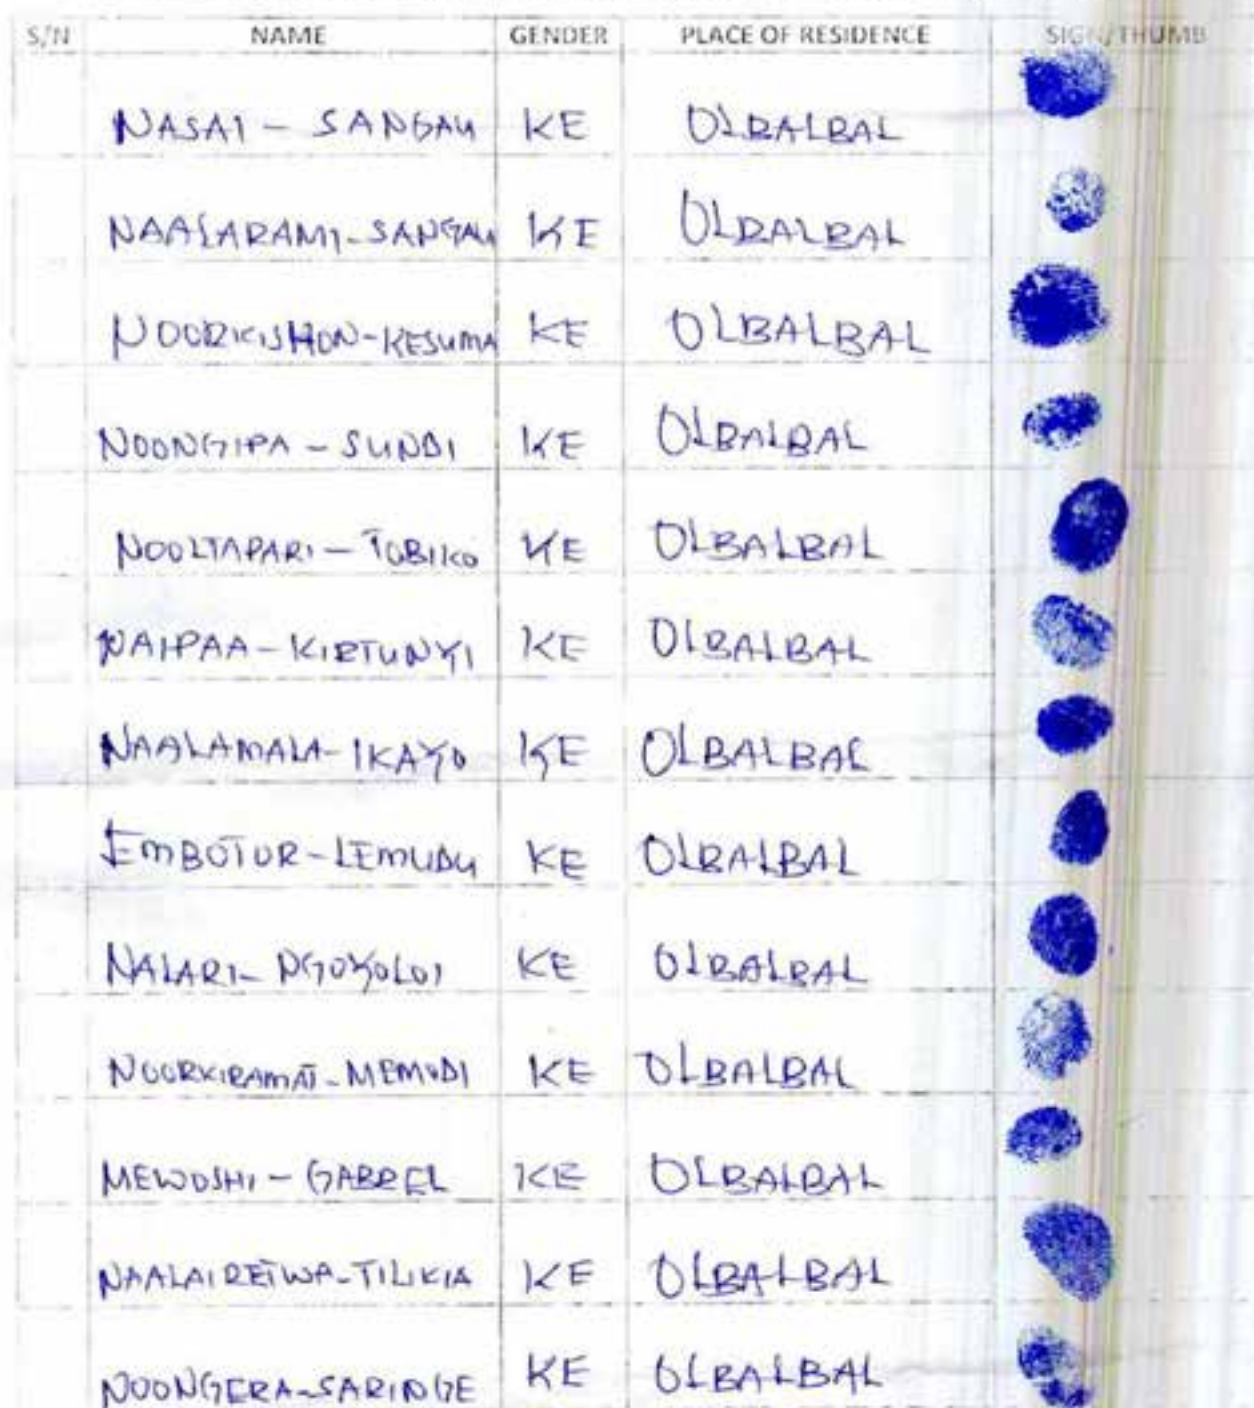 S/N NAME GENDER PLACE OF RESIDENCE SIGN/THUMB
NASAI - SANGAU KE OLBALBAL
NAASARAMI-SANGAU KE OLBALBAL
NOORKISHON-KESUMA KE OLBALBAL
NOONGIPA - SUNDI KE OLBALBAL
NOOLTAPARI - TOBIKO KE OLBALBAL
NAIPAA - KIRTUNYI KE OLBALBAL
NAALAMALA - IKAYO KE OLBALBAL
EMBOTOR - LEMUDU KE OLBALBAL
NALARI - NGOYOLOI KE OLBALBAL
NOORKIRAMAT - MEMUDI KE OLBALBAL
MEWOSHI - GABREL KE OLBALBAL
NAALAIRETWA-TILIKIA KE OLBALBAL
NOONGERA-SARINGE KE OLBALBAL